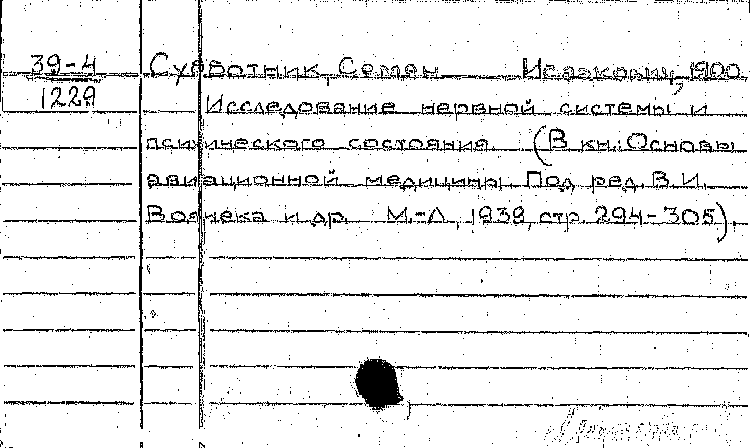 39-4 Субботник, Семен Исаакович, 1900
1229 Исследование нервной системы и
психического состояния. (В кн.: Основы
авиационной медицины. Под ред. В. И.
Воячека и др. М.-Л., 1939, стр. 294-305).